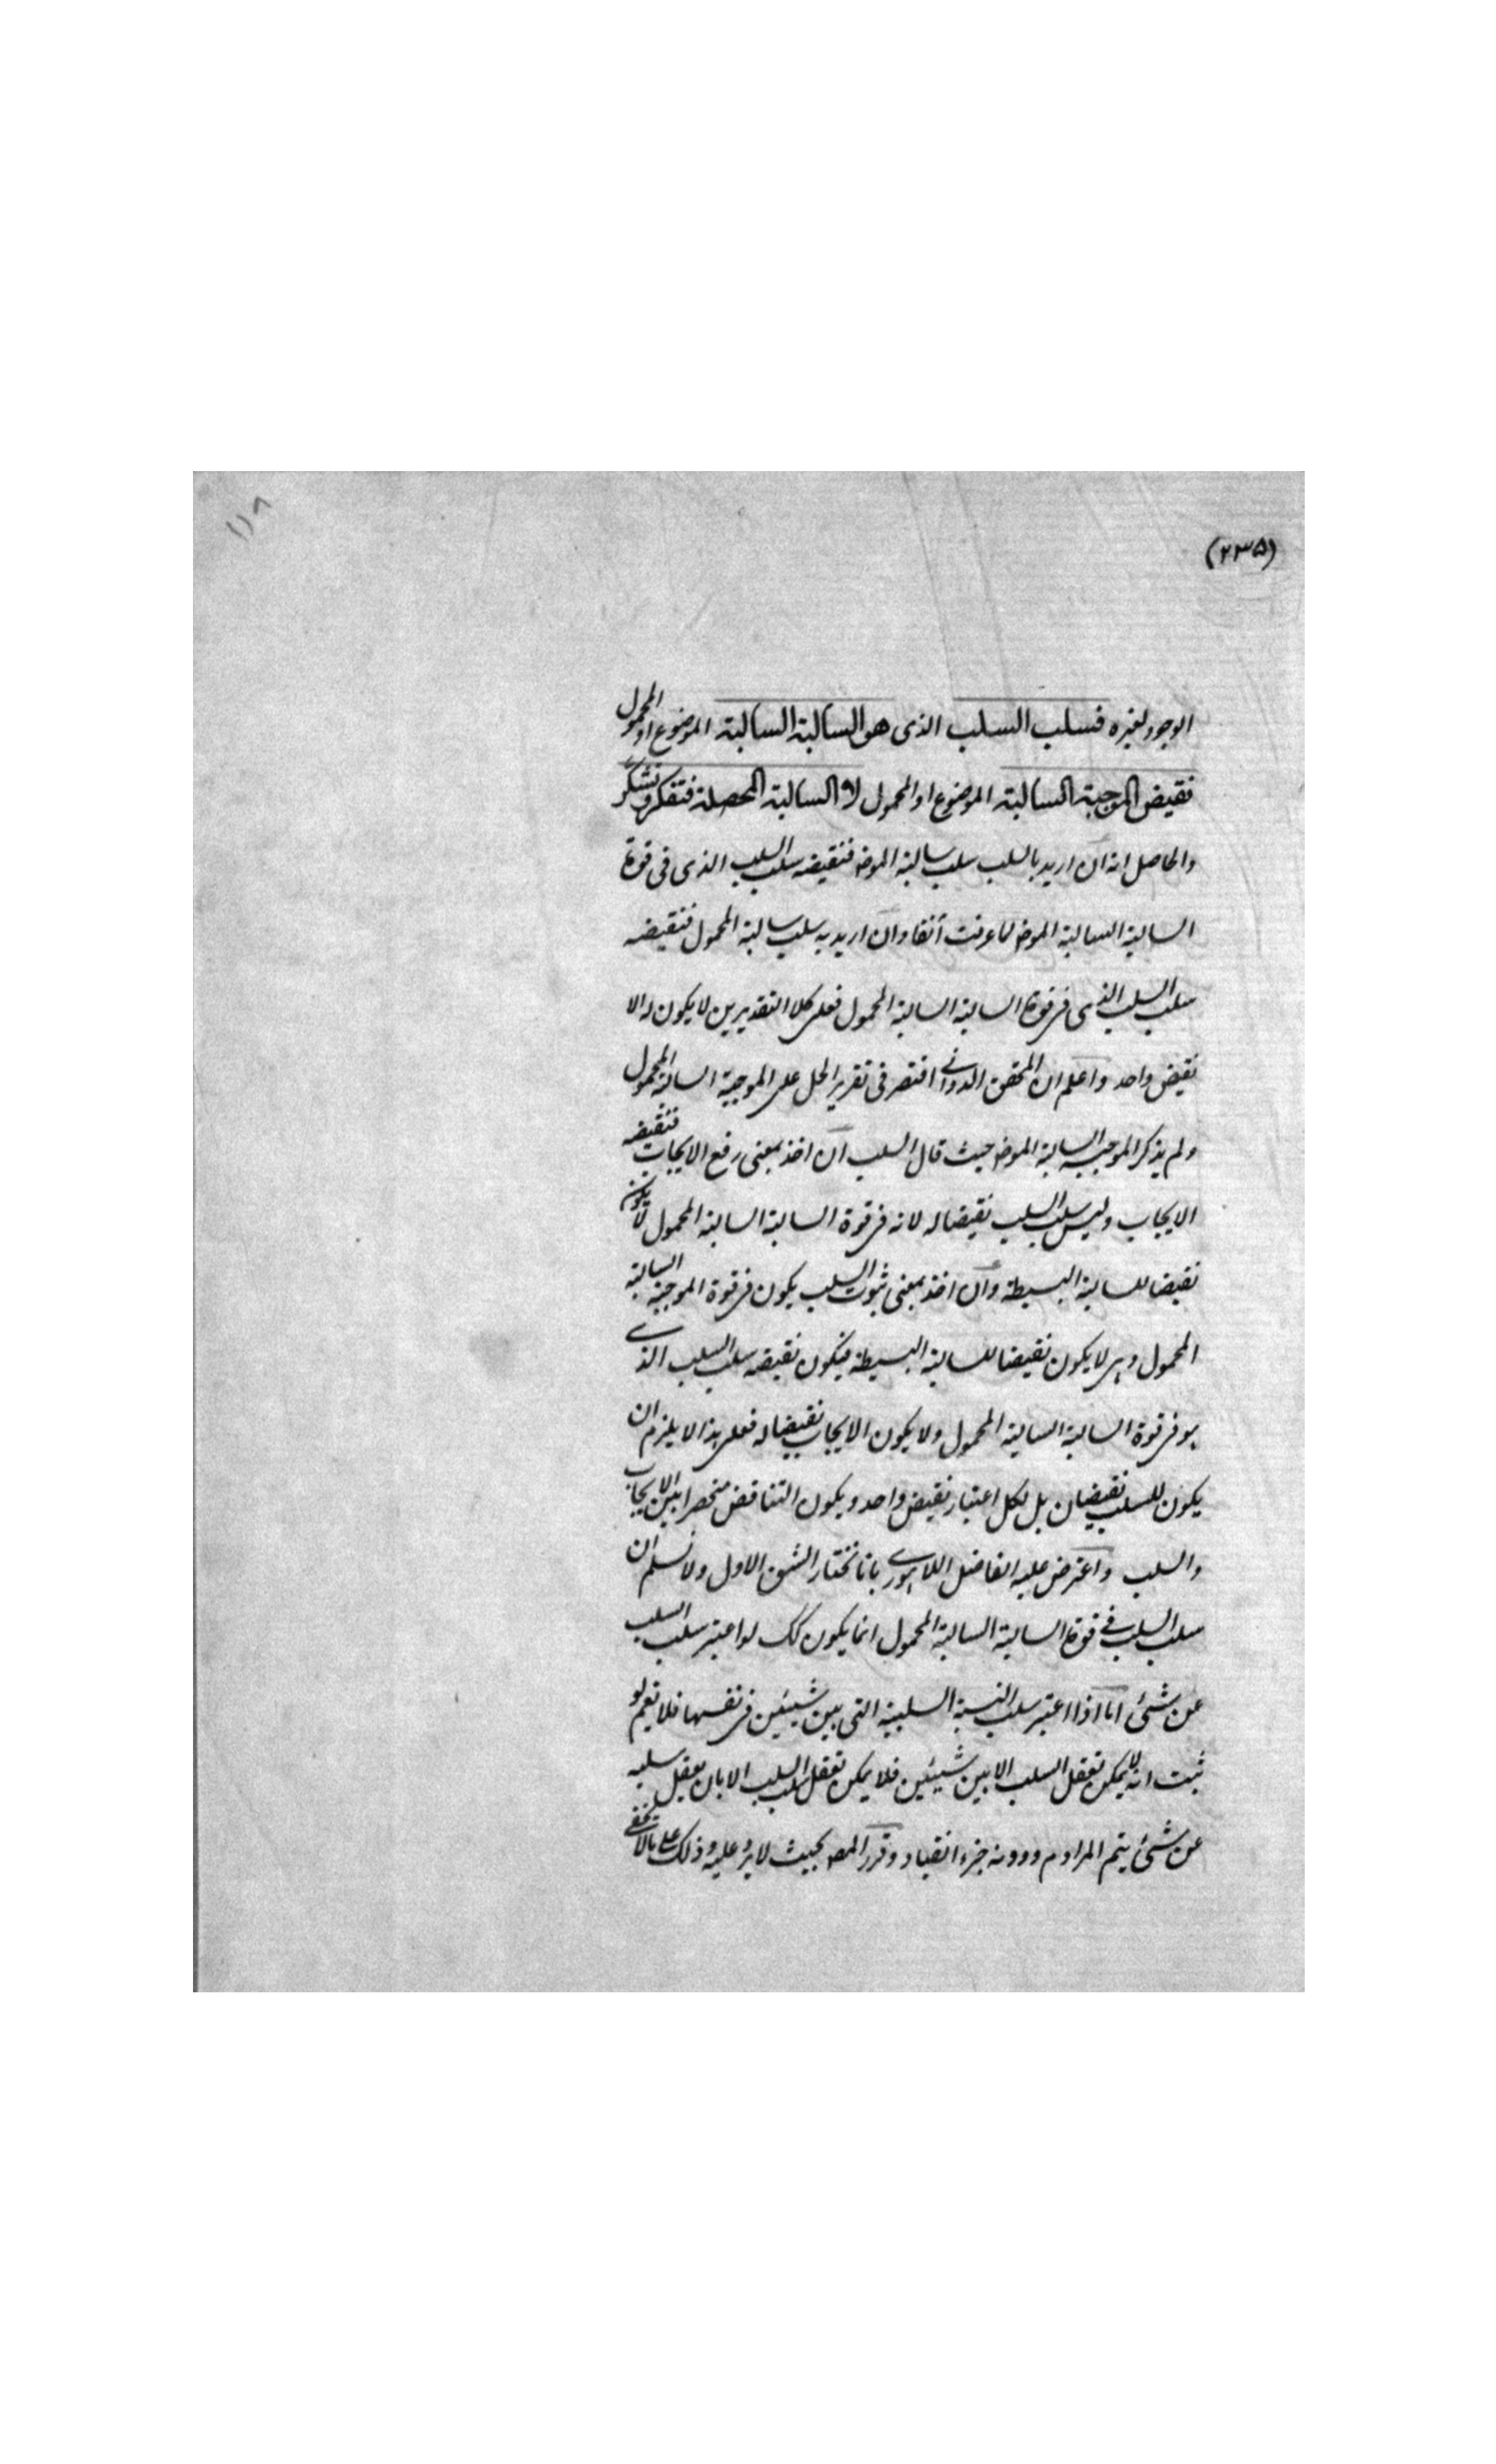 ١١٨
(٢٣٥)
الوجود لغيره فسلب السلب الذى هو السالبة السالبة الموضوع او المحمول
نقيض الموجبة السالبة الموضوع او المحمول لا السالبة المحصلة فتفكر وتشكر
والحاصل انه ان اريد بالسلب سلب سالبة الموضـ فنقيضه سلب السلب الذى فى قوة
السالبة السالبة الموضـ لما عرفت آنفا وان اريد به سلب سالبة المحمول فنقيضه
سلب السلب الذى فى قوة السالبة السالبة المحمول فعلى كلا التقديرين لا يكون له الا
نقيض واحد واعلم ان المحقق الدوانى اقتصر فى تقرير الحل على الموجبة السالبة المحمول
ولم يذكر الموجبة السالبة الموضـ حيث قال السلب ان اخذ بمعنى رفع الايجاب فنقيضه
الايجاب وليس سلب السلب نقيضا له لانه فى قوة السالبة السالبة المحمول لا يكون
نقيضا للسالبة البسيطة وان اخذ بمعنى ثبوت السلب يكون فى قوة الموجبة السالبة
المحمول وهى لا يكون نقيضا للسالبة البسيطة فيكون نقيضه سلب السلب الذى
هو فى قوة السالبة السالبة المحمول ولا يكون الايجاب نقيضا له فعلى هذا لا يلزم ان
يكون للسلب نقيضان بل لكل اعتبار نقيض واحد ويكون التناقض منحصرا بين الايجاب
والسلب واعترض عليه الفاضل اللاهورى بانا نختار الشق الاول ولا نسلم ان
سلب السلب فى قوة السالبة السالبة المحمول انما يكون كك لو اعتبر سلب السلب
عن شئ اما اذا اعتبر سلب النسبة السلبية التى بين شيئين فى نفسها فلا نعم لو
ثبت انه لا يمكن تعقل السلب الا بين شيئين فلا يمكن تعقل سلب السلب الا بان يعقل سلبه
عن شئ يتم المرام ودونه خرط القتاد وقرر المصـ بحيث لا يرد عليه وذلك على ما لا يخفى